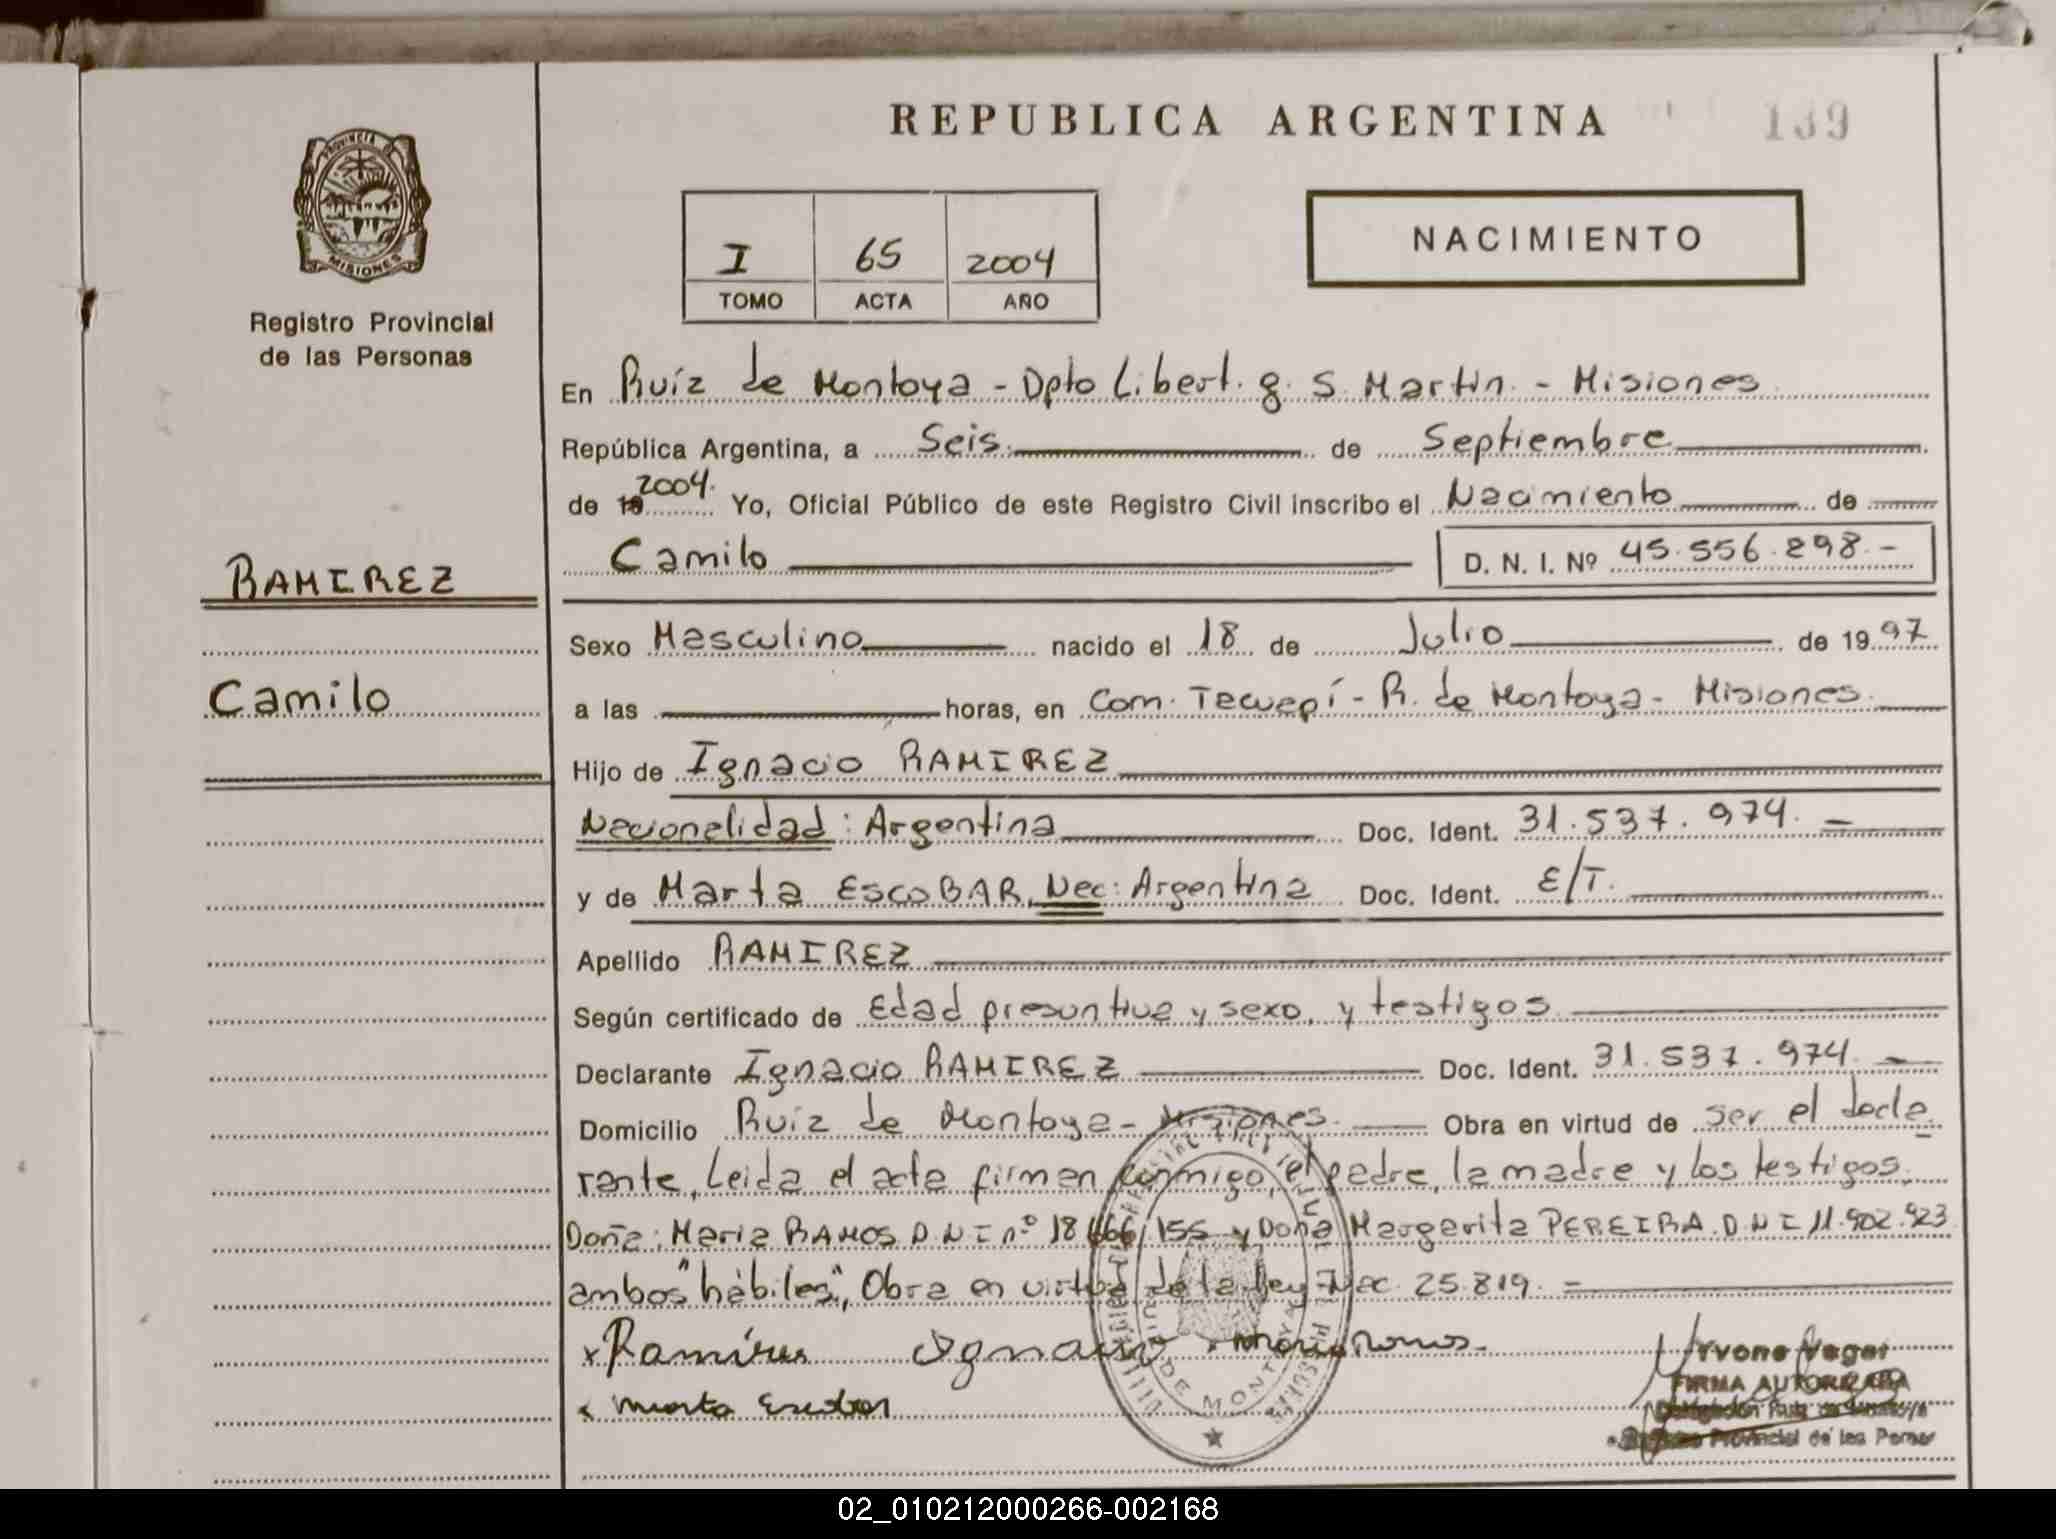 REPUBLICA ARGENTINA
139
PROVINCIA DE
MISIONES
Registro Provincial
de las Personas
I 65 2004
TOMO ACTA AÑO
NACIMIENTO
RAMIREZ
Camilo
En Ruíz de Montoya - Dpto Libert. g. S. Martin. - Misiones
República Argentina, a Seis de Septiembre
de 19 2004. Yo, Oficial Público de este Registro Civil inscribo el Nacimiento de
Camilo D. N. I. Nº 45.556.898.-
Sexo Masculino nacido el 18 de Julio de 1997
a las horas, en Com. Tecuepí - R. de Montoya - Misiones.
Hijo de Ignacio RAMIREZ
Nacionalidad: Argentina Doc. Ident. 31.537.974. -
y de Marta ESCOBAR, Nac: Argentina Doc. Ident. E/T.
Apellido RAMIREZ
Según certificado de Edad presuntiva y sexo, y testigos
Declarante Ignacio RAMIREZ Doc. Ident. 31.537.974. -
Domicilio Ruíz de Montoya - Misiones. Obra en virtud de ser el decla
rante, Leida el acta firman conmigo, el padre, la madre y los testigos.
Doña: Maria RAMOS D.N.I nº 18.666.155 y Doña Margarita PEREIRA. D.N.I 11.902.923
ambos "hábiles", Obra en virtud de la Ley Nac. 25.819. =
x Ramires Ignacio Maria Ramos
x Marta Escobar
DE MONTOYA
FIRMA AUTORIZADA
Delegación Ruiz de Montoya
Provincial de las Person
02_010212000266-002168